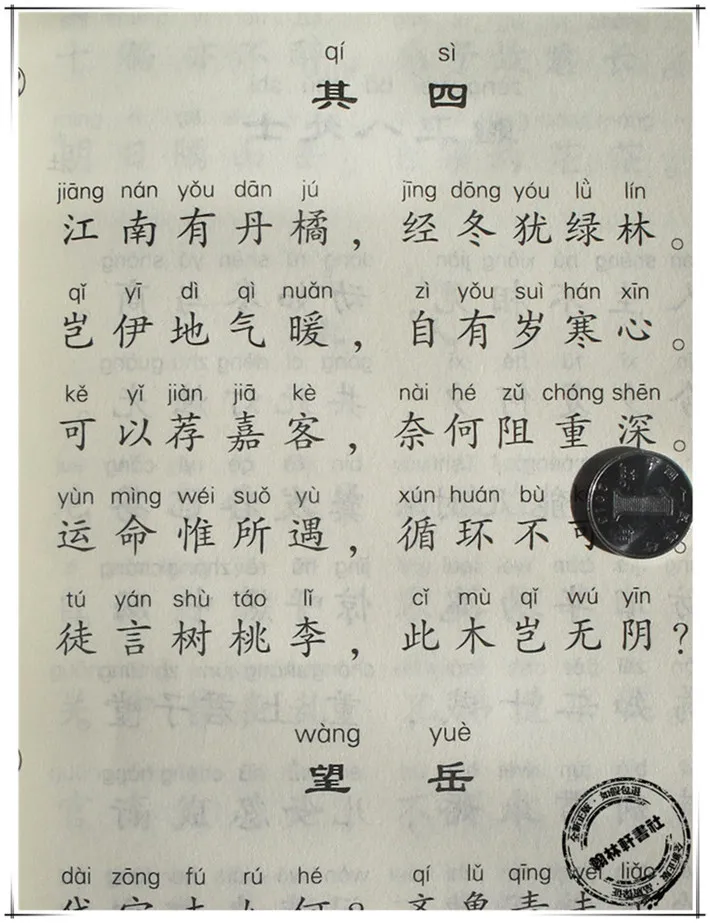 qí sì
其 四
jiāng nán yǒu dān jú jīng dōng yóu lǜ lín
江南有丹橘，经冬犹绿林。
qǐ yī dì qì nuǎn zì yǒu suì hán xīn
岂伊地气暖，自有岁寒心。
kě yǐ jiàn jiā kè nài hé zǔ chóng shēn
可以荐嘉客，奈何阻重深。
yùn mìng wéi suǒ yù xún huán bù
运命惟所遇，循环不可。
tú yán shù táo lǐ cǐ mù qǐ wú yīn
徒言树桃李，此木岂无阴？
wàng yuè
望 岳
dài zōng fú rú hé qí lǔ qīng wèi liǎo
翰林軒書社